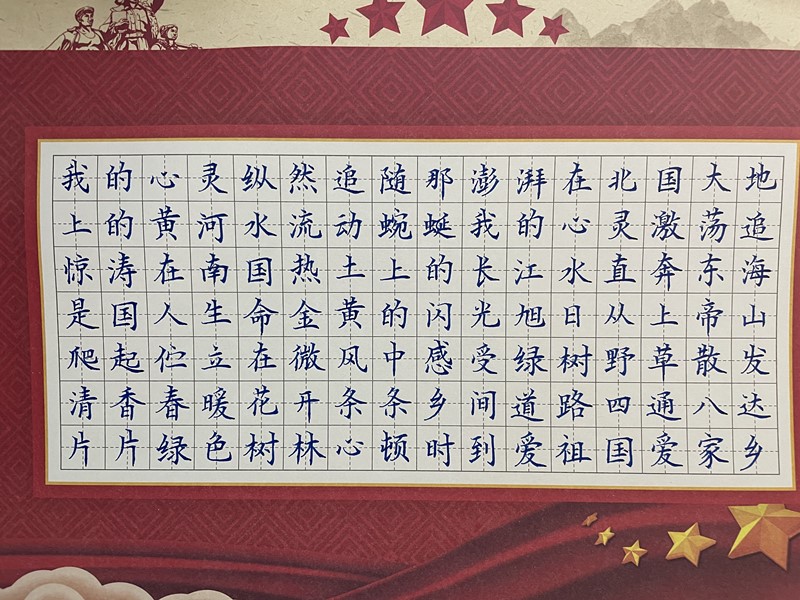 我的心灵纵然追随那澎湃在北国大地
上的黄河水流动蜿蜒我的心灵激荡追
惊涛在南国热土上的长江水直奔东海
是国人生命金黄的闪光旭日从上帝山
爬起伫立在微风中感受绿树野草散发
清香春暖花开条条乡间道路四通八达
片片绿色树林心顿时到爱祖国爱家乡